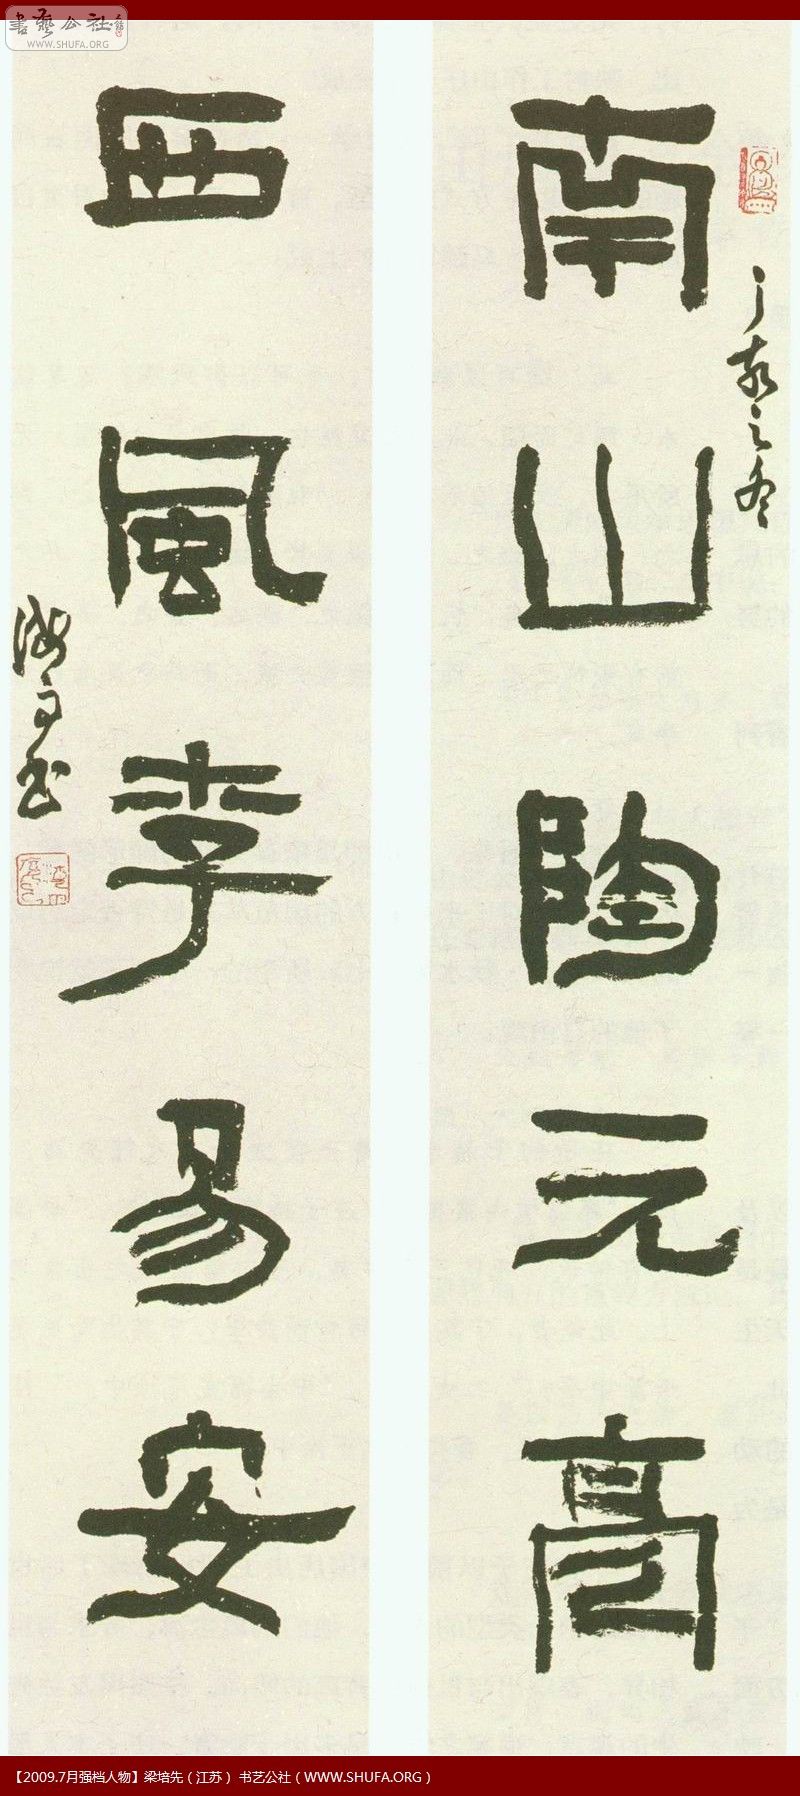 書藝公社
WWW.SHUFA.ORG
南山陶元亮
西風李易安
【2009.7月强档人物】梁培先（江苏） 书艺公社（WWW.SHUFA.ORG）